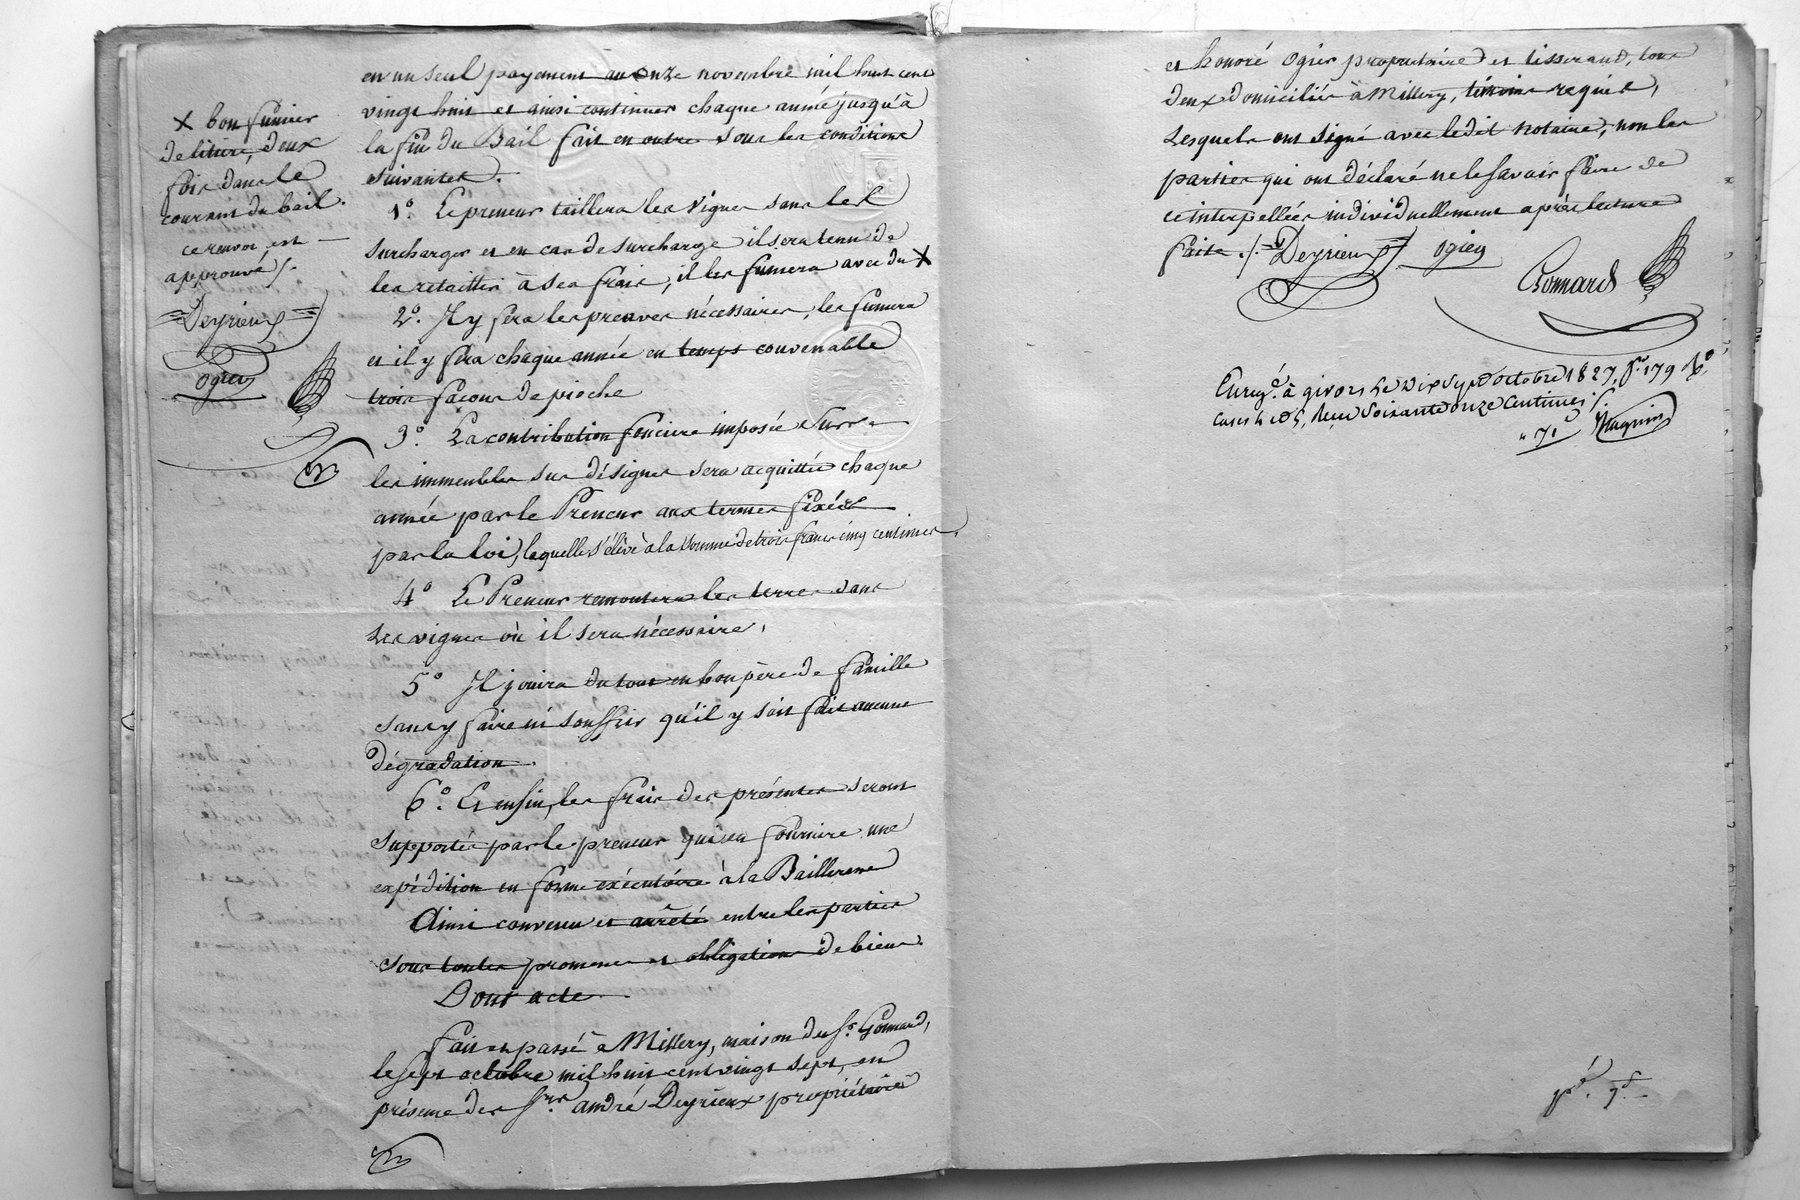 en un seul payement au onze novembre mil huit cent
vingt huit et ainsi continuer chaque année jusqu'à
la fin du Bail fait en outre sous les conditions
suivantes.
1°. Le preneur taillera les vignes sans les
surcharger et en cas de surcharge il sera tenu de
les retailler à ses frais, il les fumera avec du X
2°. Il y fera les preuves nécessaires, les fumera
et il y fera chaque année en temps convenable
trois façons de pioche
3°. La contribution foncière imposée sur
les immeubles sus désignés sera acquittée chaque
année par le Preneur aux termes fixés
par la loi, laquelle s'élève à la somme de trois francs cinq centimes.
4° Le Preneur remontera les terres dans
Les vignes où il sera nécessaire.
5° Il jouira du tout en bon père de famille
sans y faire ni souffrir qu'il y soit fait aucune
dégradation.
6°. Et enfin, les frais des présentes seront
supportés par le preneur qui en fournira une
expédition en forme exécutoire à la Bailleresse
Ainsi convenu et arrêté entre les parties
sous toutes promesses et obligations de biens.
Dont acte.
fait et passé à Millery, maison du Sr. Gonnard,
le sept octobre mil huit cent vingt sept, en
présence des Srs. andré Deyrieux propriétaire
X bon fumier
de litière, deux
fois dans le
courant du bail.
ce renvoi est
approuvé /.
Deyrieux
ogier
et honoré Ogier propriétaire et tisserand, tous
deux domiciliés à Millery, témoins requis,
Lesquels ont signé avec ledit notaire, non les
parties qui ont déclaré ne le savoir faire de
ce interpellées individuellement après lecture
faite ./. Deyrieux ogier
Gonnard
Enregé. à givors Le Dix Sept octobre 1827, fo. 179 Vo.
cases 4 et 5, Reçu Soixante onze centimes /.
"71c